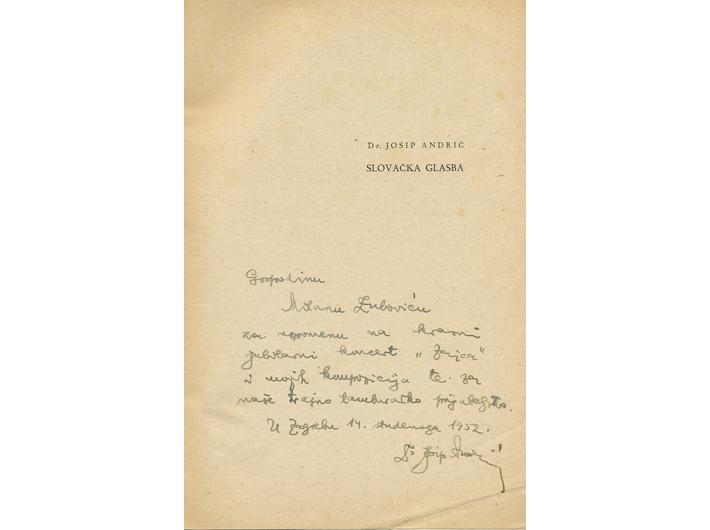 Dr. JOSIP ANDRIĆ
SLOVAČKA GLASBA
Gospodinu
Milanu Zuboviću
za uspomenu na krasni
jubilarni koncert „Zajca"
i mojih kompozicija te za
naše trajno tamburaško prijateljstvo.
U Zagrebu 14. studenoga 1952.
Dr Josip Andrić